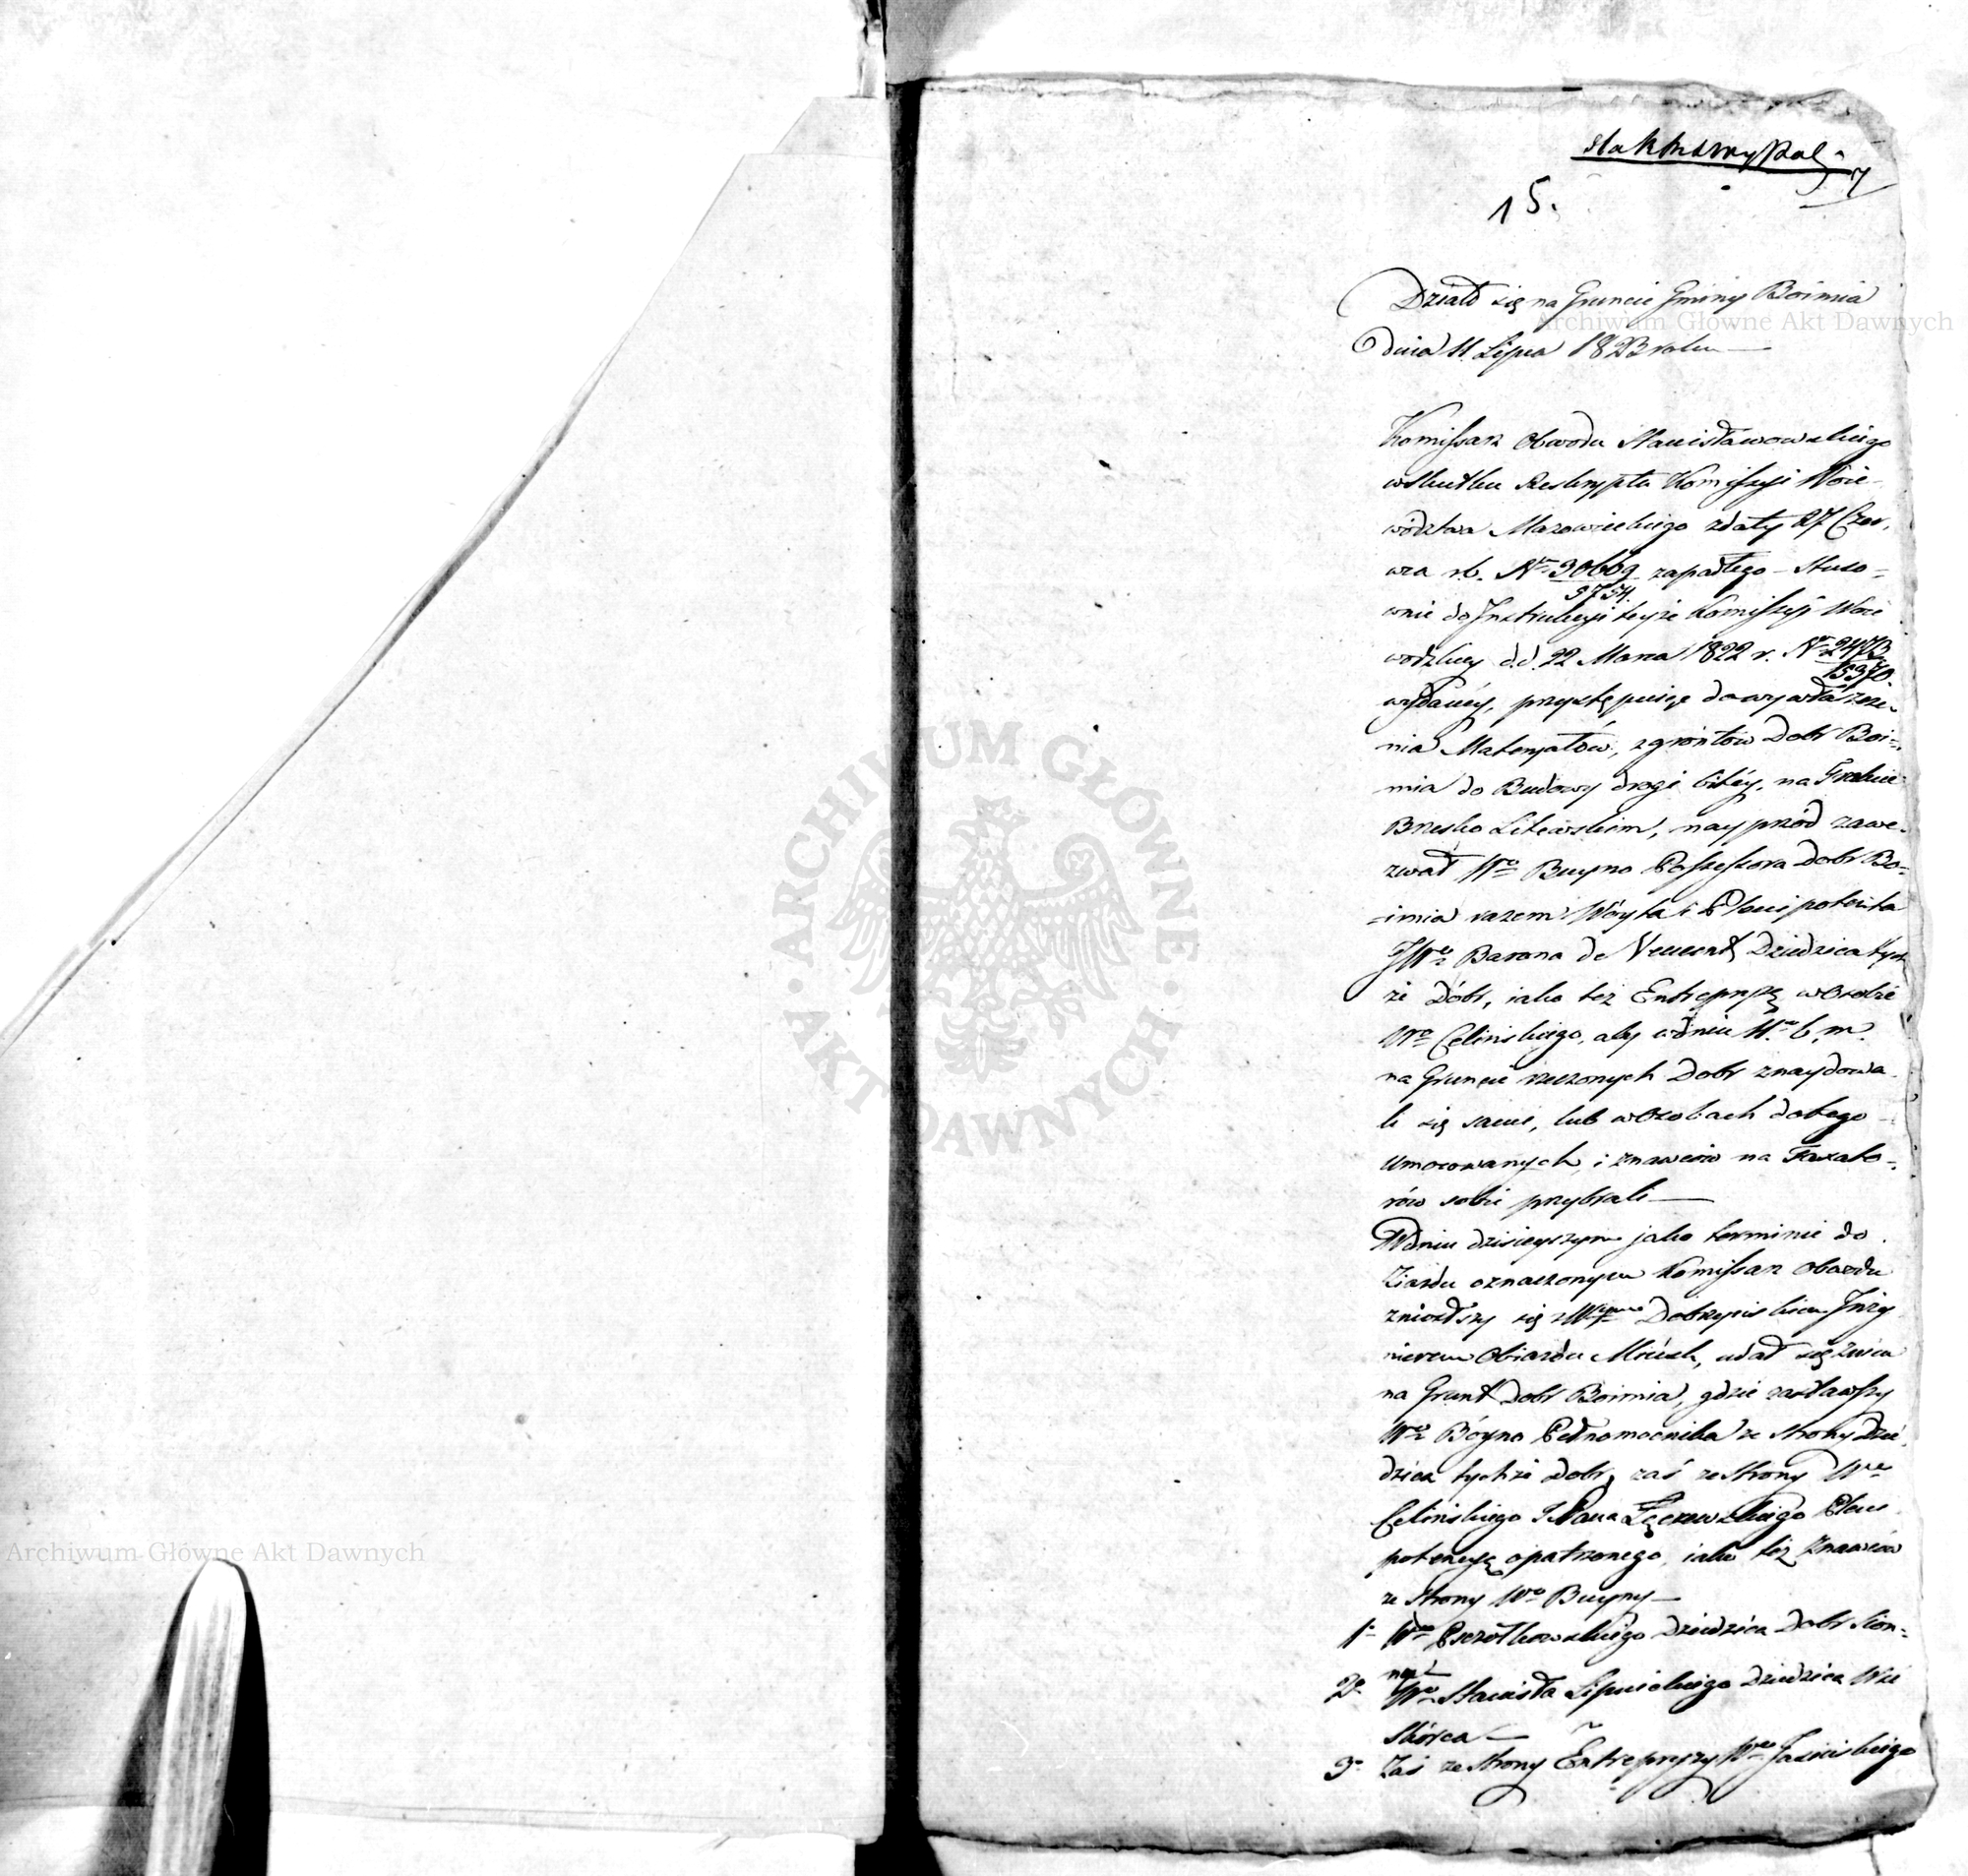 7
15.
Działo się na Gruncie Gminy Boimia
dnia 11 Lipca 1823 roku —
Komissarz Obwodu Stanisławowskiego
wskutku Reskryptu Komissyi Woie-
wództwa Mazowieckiego zdaty 27 Czer,
wca r.b. Nr 30669 zapadłego – Stoso=
9754.
wnie do Instrukcyi teyże Komissyi Woie
wodzkiey d.d. 22 Marca 1822 r. Nr 2473
15370.
wydanéy, przystępuiąc do wywłaszcze-
nia Materyałów, zgrontów Dobr Boi=
mia do Budowy drogi bitéy, na Trakcie
Brzesko Litewskim, nayprzód zawe-
zwał Wo Buyno Possessora Dobr Bo=
imia razem Wóyta i Plenipotenta
JWo Barona de Dziedzica tych
że Dóbr, iako też Entrepryzę w Osobie
Wo Celinskiego, aby w dniu 11. b. m.
na Gruncie rzeczonych Dobr znaydowa
li się sami, lub w Osobach do tego
Umocowanych, i znawców na Taxato-
rów sobie przybrali —
W dniu dzisieyszym jako terminie do
Ziazdu oznaczonym Komissarz Obwodu
zniosłszy się z Inży
nierem Obiazdu Mińsk, udał się
na Grunt Dobr Boimia, gdzie zastawszy
Wo Bóyno Pełnomocnika ze strony Dzie,
dzica tychże Dobr, zaś ze strony Wo
Celinskiego Pana Pleni
potencyą opatrzonego, iako też Znawców
ze strony Wo Buyny —
1o Wo Dziedzica Dobr
2o Wo Stanisła Dziedzica Wsi
3o Zaś ze strony Entrepryzy Wo Jasinskiego
Archiwum Główne Akt Dawnych
Archiwum Główne Akt Dawnych
ARCHIWUM GŁÓWNE
AKT DAWNYCH